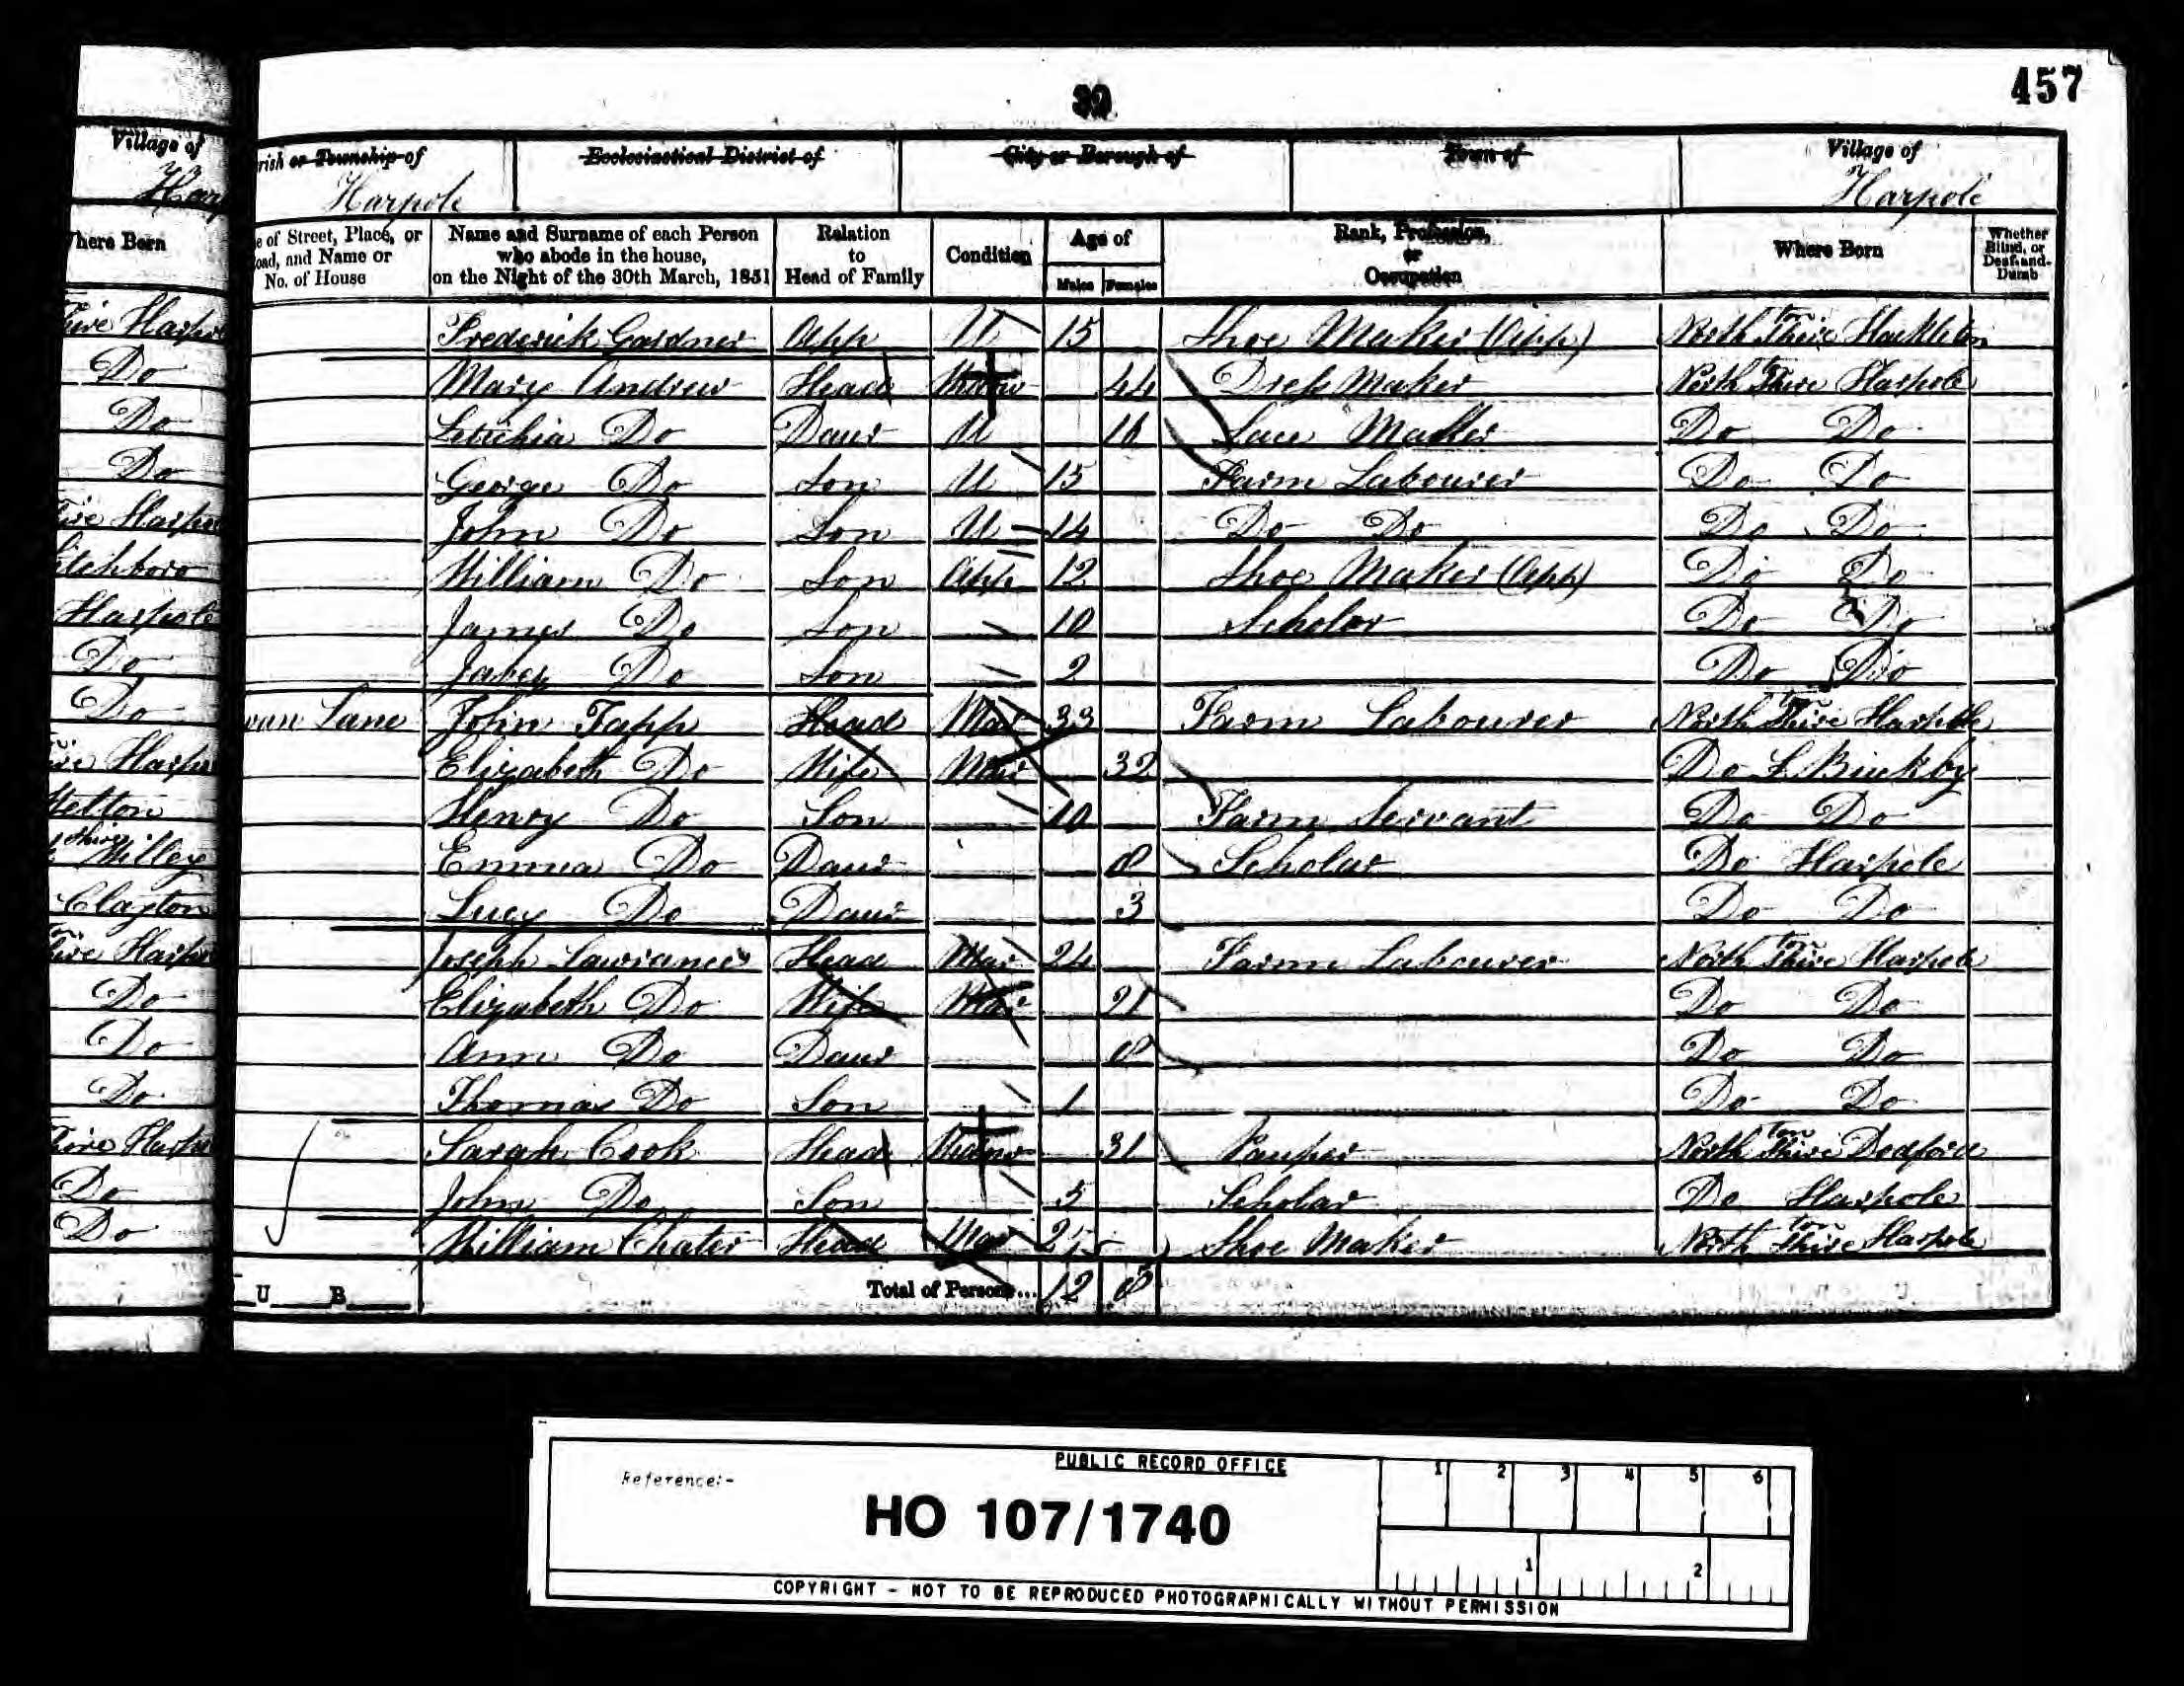 457
Village of
Harp
here Born
rish or Township of
Harpole
Ecclesiastical District of
City or Borough of
Town of
Village of
Harpole
e of Street, Place, or oad, and Name or No. of House
Name and Surname of each Person who abode in the house, on the Night of the 30th March, 1851
Relation to Head of Family
Condition
Age of
Males Females
Rank, Profession, or Occupation
Where Born
Whether Blind, or Deaf-and-Dumb
Frederick Gardner App U 15 Shoe Maker (App) North ton Shire Hackleton
Mary Andrew Head Widow 44 Dress Maker North ton Shire Harpole
Letichia Do Daur U Lace Maker Do Do
George Do Son U 15 Farm Labourer Do Do
John Do Son U 14 Do Do Do Do
William Do Son App 12 Shoe Maker (App) Do Do
James Do Son 10 Scholar Do Do
Jabez Do Son 2 Do Do
wan Lane John Tapp Head Mar 33 Farm Labourer North ton Shire Harpole
Elizabeth Do Wife Mar 32 Do
Henry Do Son 10 Farm Servant Do Do
Emma Do Daur 8 Scholar Do Harpole
Lucy Do Daur 3 Do Do
Joseph Lawrance Head Mar 24 Farm Labourer North ton Shire Harpole
Elizabeth Do Wife Mar 21 Do Do
Ann Do Daur 8 Do Do
Thomas Do Son 1 Do Do
Sarah Cook Head Widow 31 Pauper North ton Shire Dodford
John Do Son 5 Scholar Do Harpole
William Chater Head Mar 25 Shoe Maker North ton Shire Harpole
U B
Total of Persons... 12 8
Reference:-
PUBLIC RECORD OFFICE
HO 107/1740
1 2 3 4 5 6
1 2
COPYRIGHT - NOT TO BE REPRODUCED PHOTOGRAPHICALLY WITHOUT PERMISSION